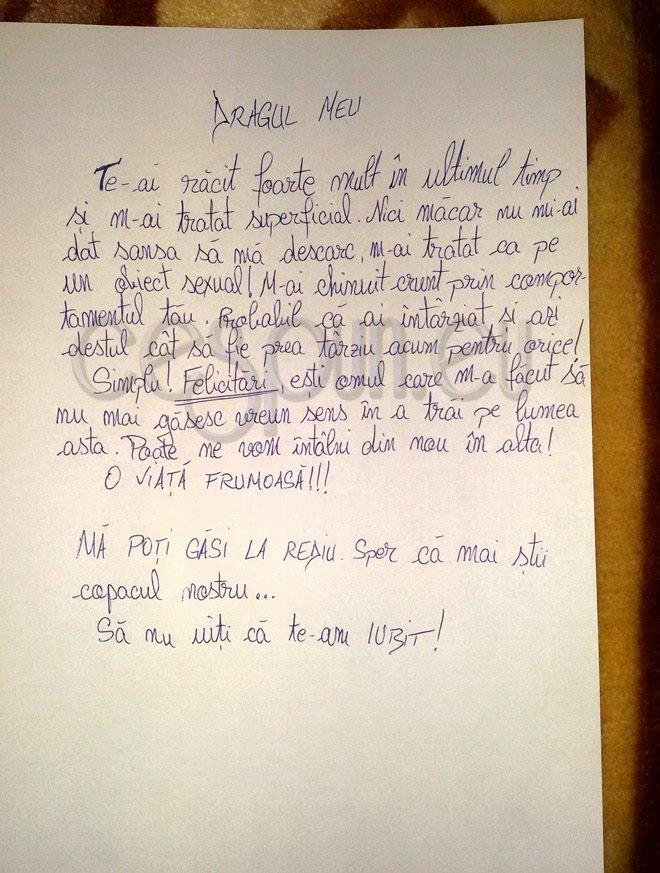 DRAGUL MEU
Te-ai răcit foarte mult în ultimul timp
și m-ai tratat superficial. Nici măcar nu mi-ai
dat sansa să mă descarc, m-ai tratat ca pe
un obiect sexual! M-ai chinuit crunt prin compor-
tamentul tău. Probabil că ai întârziat si azi
destul cât să fie prea târziu acum pentru orice!
Simplu! Felicitări, esti omul care m-a făcut să
nu mai găsesc vreun sens în a trăi pe lumea
asta. Poate ne vom întâlni din nou în alta!
O VIAȚĂ FRUMOASĂ!!!
MĂ POȚI GĂSI LA REDIU. Sper că mai știi
copacul nostru...
Să nu uiți că te-am IUBIT!
cespun.eu